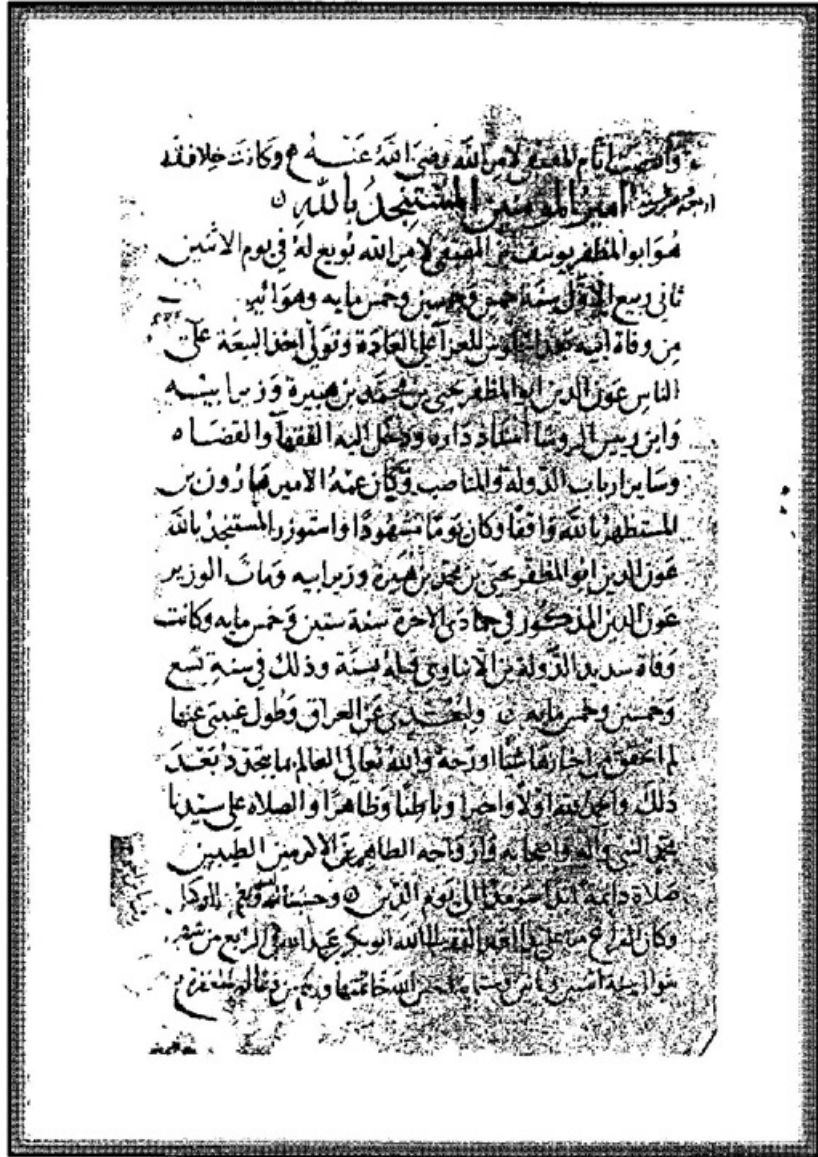 وانقضت ايام المقتفي لامر الله رضي الله عنه وكانت خلافته
امير المومنين المستنجد بالله
هو ابو المظفر يوسف بن المقتفي لامر الله بويع له في يوم الاثنين
ثاني ربيع الاول سنة خمس وخمسين وخمس مايه وهو
من وفاة ابيه للعزا على العادة وتولى اخذ البيعة على
الناس عون الدين ابو المظفر يحيى بن محمد بن هبيرة وزير ابيه
وابن رييس الروسا استاذ داره ودخل اليه الفقها والقضاه
وساير ارباب الدولة والمناصب وكان عمه الامير هارون بن
المستظهر بالله واقفا وكان يوما مشهودا واستوزر المستنجد بالله
عون الدين ابو المظفر يحيى بن محمد بن هبيرة وزير ابيه ومات الوزير
عون الدين المذكور في جمادى الاخرة سنة ستين وخمس مايه وكانت
وفاة سديد الدولة بن الانباري قبله بسنة وذلك في سنة تسع
وخمسين وخمس مايه ولبعدي عن العراق وطول غيبتي عنها
لم اتحقق من اخبارها شيا اورخه والله تعالى العالم بما يتجدد بعد
ذلك والحمد لله اولا واخرا وباطنا وظاهرا والصلاه على سيدنا
محمد النبي واله واصحابه وازواجه الطاهرين الاكرمين الطيبين
صلاة دايمة ابدا سرمدا الى يوم الدين وحسبنا الله ونعم الوكيل
وكان الفراغ من الفقير الى الله ابو بكر عبد الله في الرابع من شهر
شوال سنة اثنين وستمايه احسن الله خاتمتها ورحم من دعا له بالمغفرة